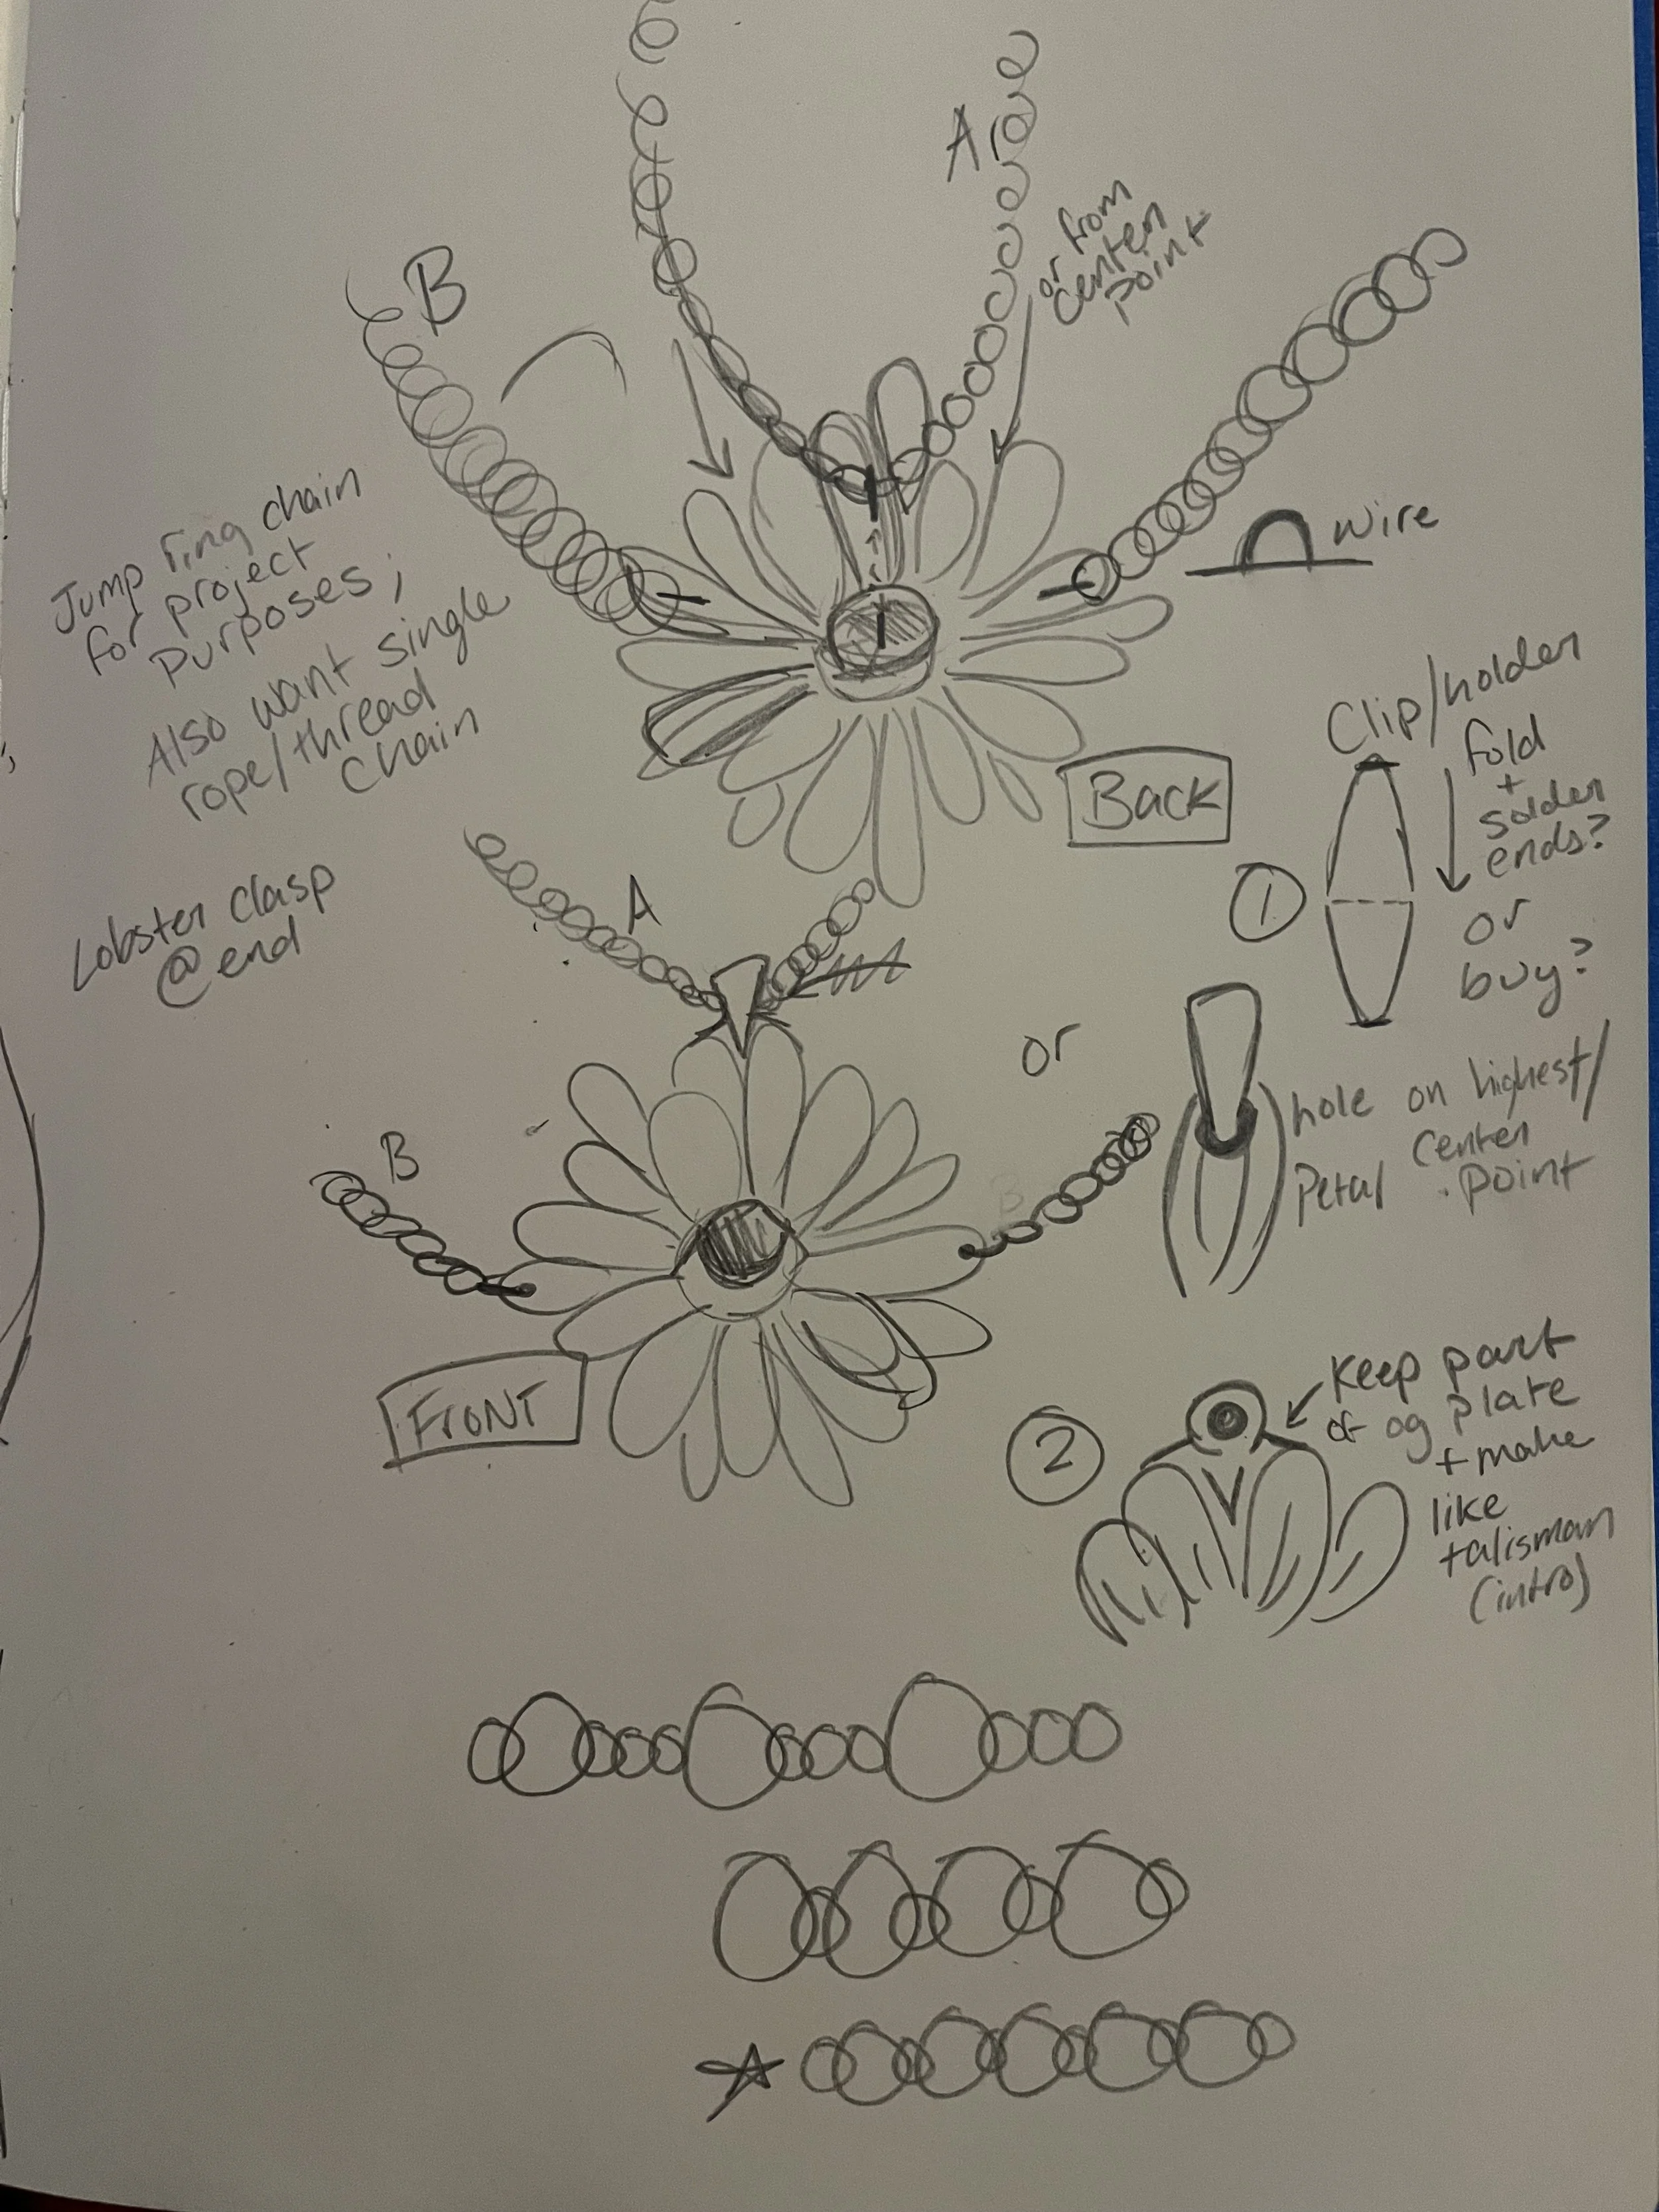 A
or from
center
point
B
wire
Jump ring chain
for project
purposes;
Also want single
rope/thread
chain
Back
Clip/holder
fold
+
solder
ends?
or
buy?
1
Lobster clasp
@ end
A
or
hole on highest/
center
Petal point
B
B
FRONT
2
Keep part
of og plate
+ make
like
talisman
(intro)